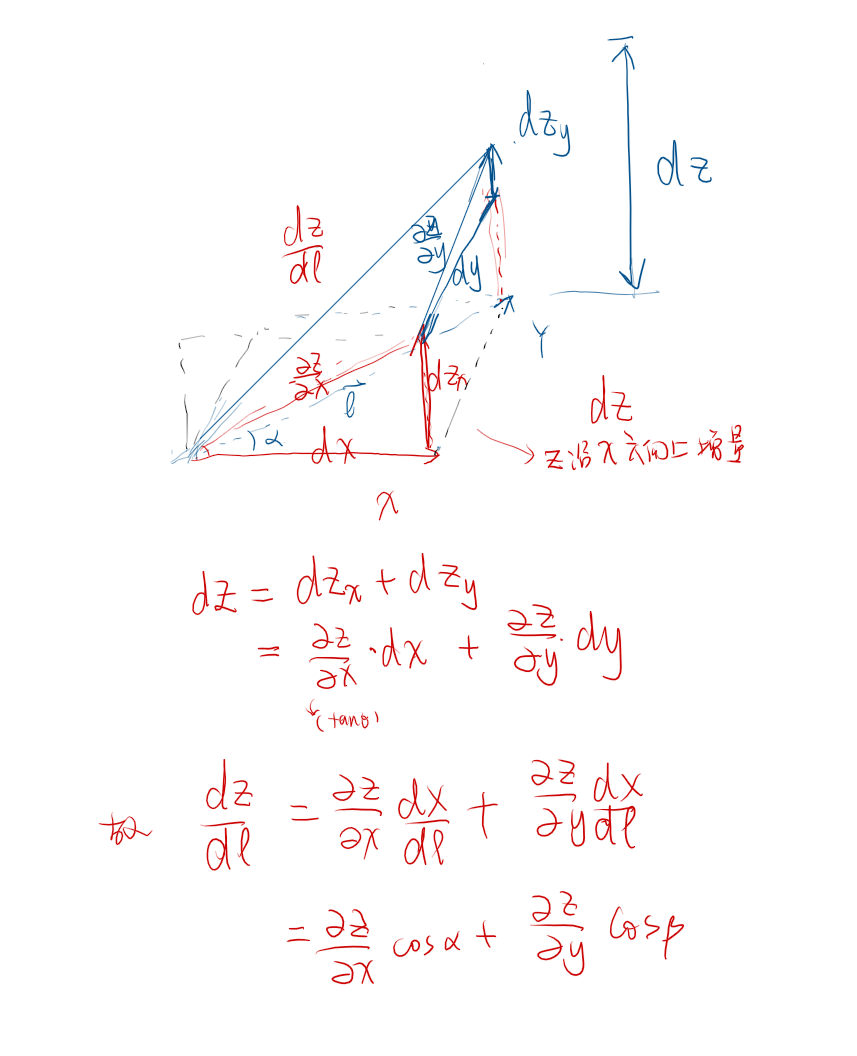 dz_y
dz
dz/dl
∂z/∂y
dy
Y
∂z/∂x
l⃗
dz_x
α
dx
dz
z沿x方向上增量
x
dz = dz_x + dz_y
= ∂z/∂x · dx + ∂z/∂y · dy
(tanθ)
故 dz/dl = ∂z/∂x dx/dl + ∂z/∂y dx/dl
= ∂z/∂x cosα + ∂z/∂y cosβ